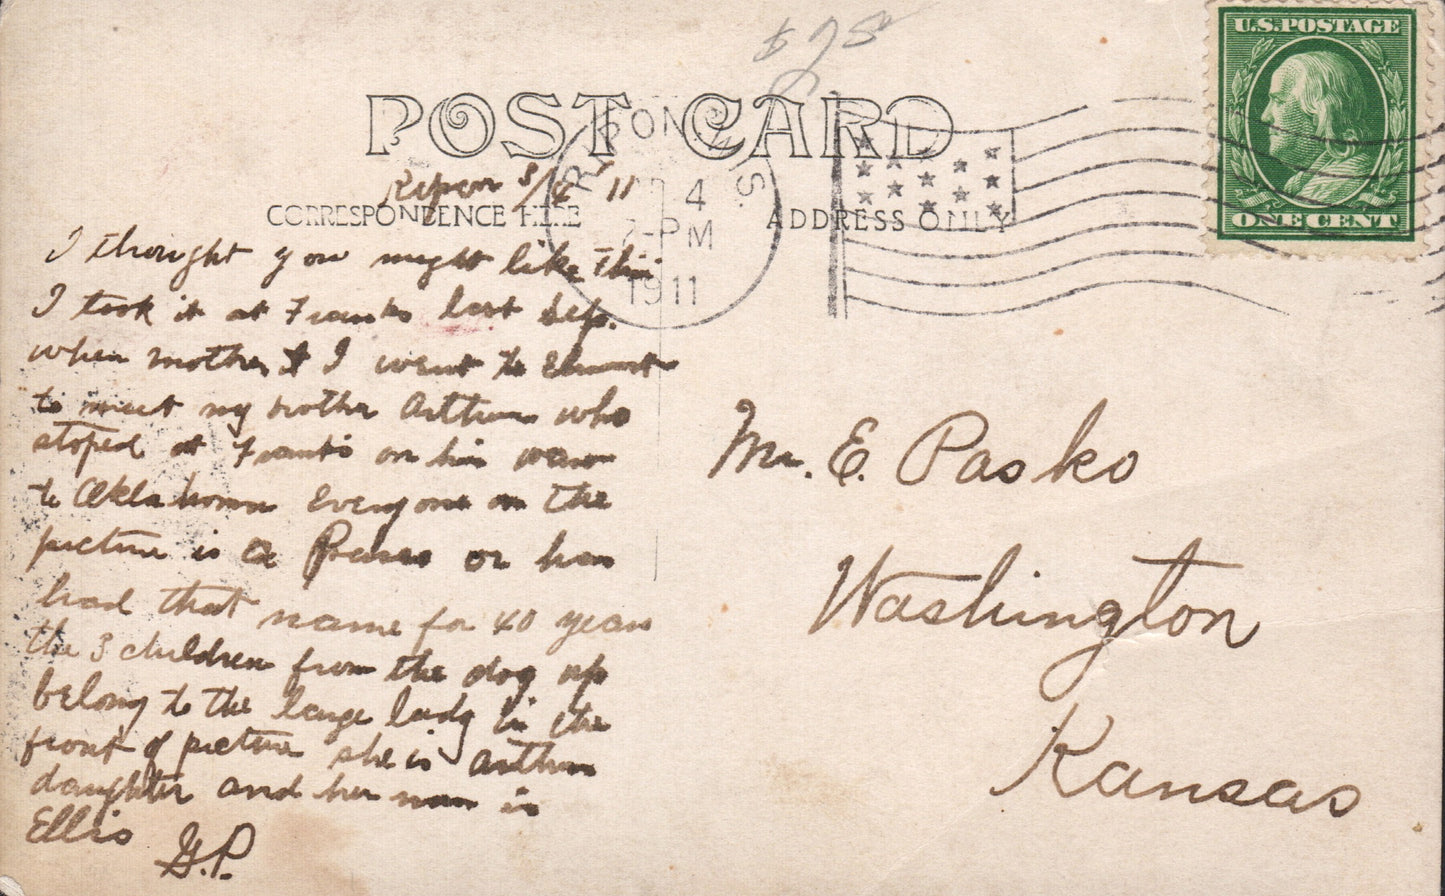 $ 75
U.S. POSTAGE
ONE CENT
POST CARD
RIPON WIS.
4
7-PM
1911
CORRESPONDENCE HERE
ADDRESS ONLY
Ripon 11
I thought you might like this
I took it at Franks last Sep.
when mother & I went to
to meet my brother Arthur who
stoped at Franks on his way
to Oklahoma Everyone on the
picture is a or has
had that name for 40 years
the 3 children from the dog up
belong to the large lady in the
front of picture she is Arthurs
daughter and her name is
Ellis G.P.
Mr. E. Pasko
Washington
Kansas